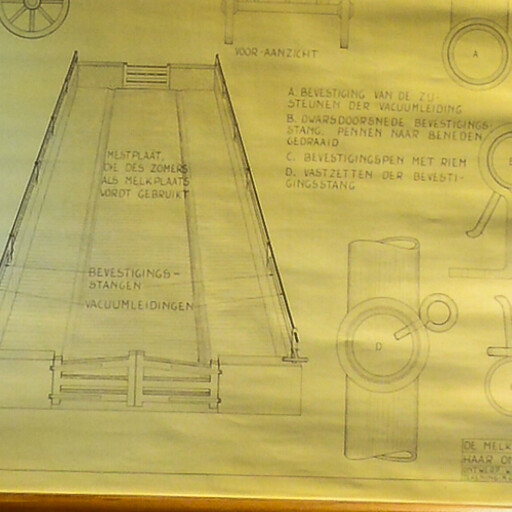 VOOR-AANZICHT
A
A. BEVESTIGING VAN DE ZIJ-
STEUNEN DER VACUUMLEIDING
B. DWARSDOORSNEDE BEVESTIGINGS-
STANG, PENNEN NAAR BENEDEN
GEDRAAID
C. BEVESTIGINGSPEN MET RIEM
D. VASTZETTEN DER BEVESTI-
GINGSSTANG
MESTPLAAT,
DIE DES ZOMERS
ALS MELKPLAATS
WORDT GEBRUIKT
BEVESTIGINGS-
STANGEN
VACUUMLEIDINGEN
D
DE MELK
HAAR
ONTWERP